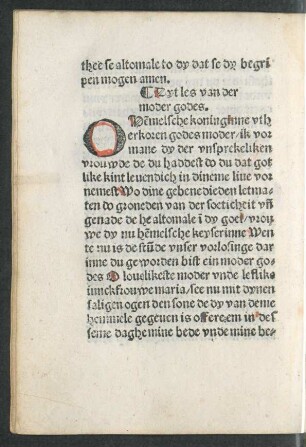 thet se altomale to dy dat se dy begri
pen mogen amen.
Eyt les van der
moder godes.
O Hēmelsche koningīnne vth
erkoren godes moder / ik vor
mane dy der vnsprekeliken
vrouwde de du haddest do du dat got
like kint leuendich in dineme liue vor
nemest Wo dine gebenedieden letma-
ten to groneden van der soeticheit vn̄
genade de he altomale ī dy goet / vrou
we dy nu hēmelsche keyserinne Wen
te nu is de stūde vnser vorlosinge dar
inne du geworden bist ein moder go-
des O louelikeste moder vnde leflike
innckfrouwe maria / see nu mit dynen
saligen ogen den sone de dy van deme
hemmele gegeuen is offere em in des
seme daghe mine bede vnde mine be-